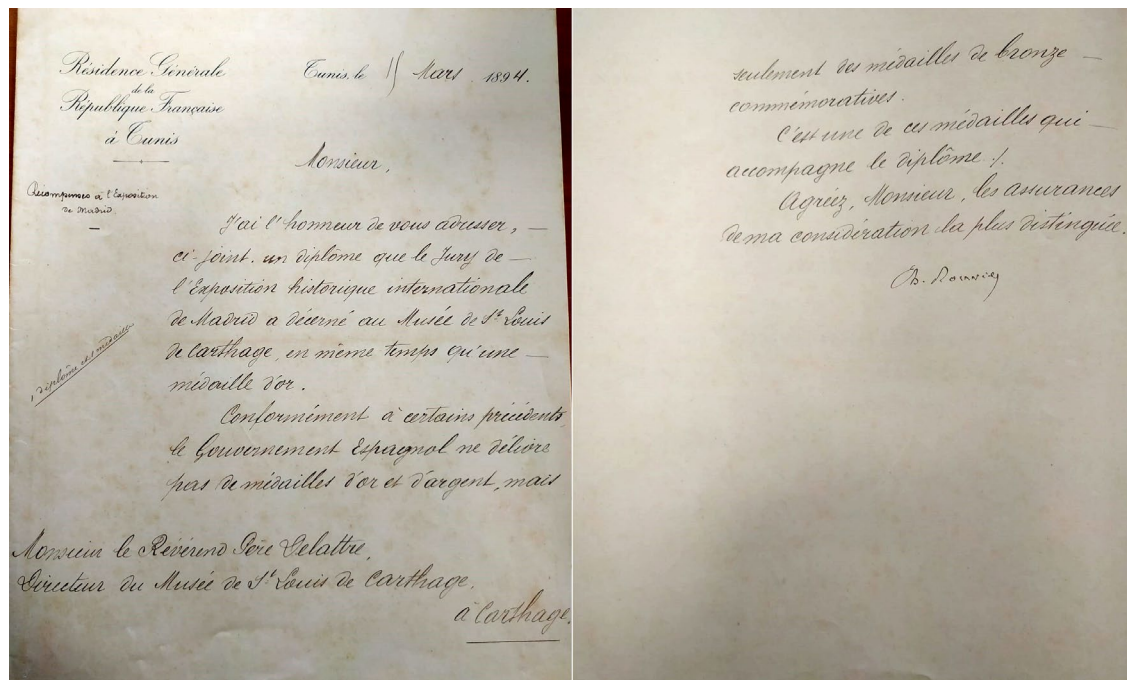 Résidence Générale
de la
République Française
à Tunis
Tunis, le 15 Mars 1894.
Monsieur,
Récompenses à l'Exposition
de Madrid.
J'ai l'honneur de vous adresser,
ci-joint, un diplôme que le Jury de
l'Exposition historique internationale
de Madrid a décerné au Musée de St Louis
de Carthage, en même temps qu'une
médaille d'or.
1 diplôme et 1 médaille
Conformément à certains précédents,
le Gouvernement Espagnol ne délivre
pas de médailles d'or et d'argent, mais
Monsieur le Révérend Père Delattre,
Directeur du Musée de St Louis de Carthage.
à Carthage.
seulement des médailles de bronze
commémoratives.
C'est une de ces médailles qui
accompagne le diplôme ./.
Agréez, Monsieur, les assurances
de ma considération la plus distinguée.
Ch. Rouvier